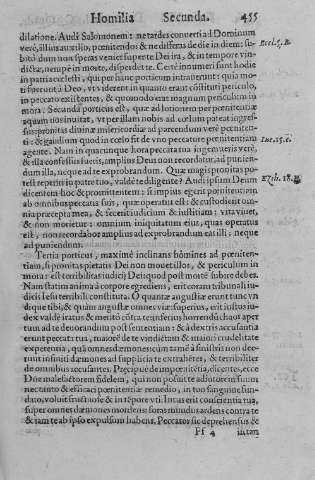 Homilia Secunda. 455
dilatione. Audi Salomonem: ne tardes conuerti ad Dominum
verè, illius auxilio, pœnitendos & ne differas de die in diem: su-
bitò dum non speras veniet super te Dei ira, & in tempore vin-
dictæ, nempè in morte, disperdet te. Certè innumeri sunt hodie
in patria cælesti, qui per hanc porticum intrauerunt: quia mo-
ti fuerunt à Deo, vt viderent in quanto erant constituti periculo,
in peccato existentes, & quomodo erat magnum periculum in
mora. Secunda porticus est, quæ ad hortorem per pœnitentiæ
aquam nos inuitat, vt per illam nobis ad cœlum pateat ingres-
sus: pronitas diuinæ misericordiæ ad parcendum verè pœniten-
ti: & gaudium quod in cœlo fit de vno peccatore pœnitentiam
agente. Nam in quacunque hora peccator ingemuerit verè,
& illa confessus fueris, amplius Deus non recordatur, ad punien-
dum illa, neque ad te exprobrandum. Quæ magis pronitas po-
test reperiri in patre tuo, valdè te diligente? Audi ipsum Deum
dicentem hoc & promittentem: si impius egerit pœnitentiam
ab omnibus peccatis suis, quæ operatus est: & custodierit om-
nia præcepta mea, & fecerit iudicium & iustitiam: vita viuet,
& non morietur: omnium iniquitatum eius, quas operatus
est, non recordabor amplius ad exprobrandum ei illi; neque
ad puniendum.
Tertia porticus, maximè inclinans homines ad pœniten-
tiam, si pronitas pietatis Dei non mouet illos, & periculum in
mora: est terribilitas iudicij Dei quod post mortē subire debes.
Nam statim anima à corpore egrediens, erit coram tribunali iu-
dicis Iesu terribili constituta. O quantæ angustiæ erunt tunc vn
dique tibi, & quàm angustæ omnes viæ: superius, erit iustus iu-
dex valdè iratus & meritò cōtra te: inferius horrendū chaos aper
tum ad te deuorandum post sententiam: & à dextris accusantia
erunt peccata tua, maiorē de te vindictam & minori crudelitate
expetentia, quā omnes dæmones: cum tamē à sinistris non dee-
runt infiniti dæmones ad supplicia te extrahētes, & terribiliter
de omnibus accusantes. Præcipuè de impœnitētia, dicentes, ecce
Dñe malefactorem fidelem, qui non posuit te adiutorem suum
nec tanto & efficaci pœnitentiæ remedio, in tuo sanguine fun-
dato, voluit frustuosè & in tēpore vti. Intus erit conscientia tua,
super omnes dæmones mordens: foras mundus ardens contra te
& iam te ab ipso expulsum habens. Peccator sic deprehensus &
Ff 4 in tan
Eccl. 5. B.
Luc. 15. c.
Ezech. 18.